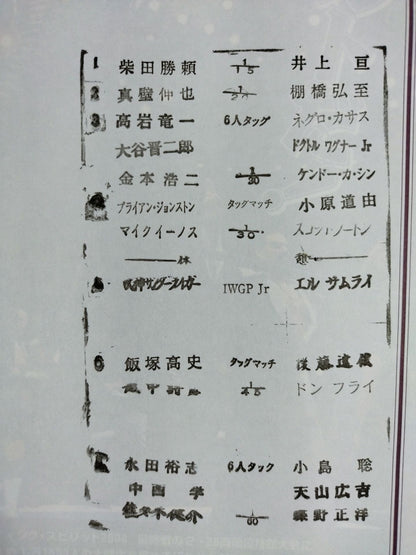 1 柴田勝頼 1/15 井上亘
2 真壁伸也 1/20 棚橋弘至
3 高岩竜一 6人タッグ ネグロ・カサス
大谷晋二郎 ドクトル ワグナー Jr
金本浩二 1/30 ケンドー・カ・シン
ブライアン・ジョンストン タッグマッチ 小原道由
マイクイーノス 1/30 スコット・ノートン
休 憩
獣神サンダーライガー IWGP Jr エル サムライ
6 飯塚高史 タッグマッチ 後藤達俊
1/45 ドン フライ
永田裕志 6人タック 小島聡
中西学 天山広吉
佐々木健介 1/60 蝶野正洋